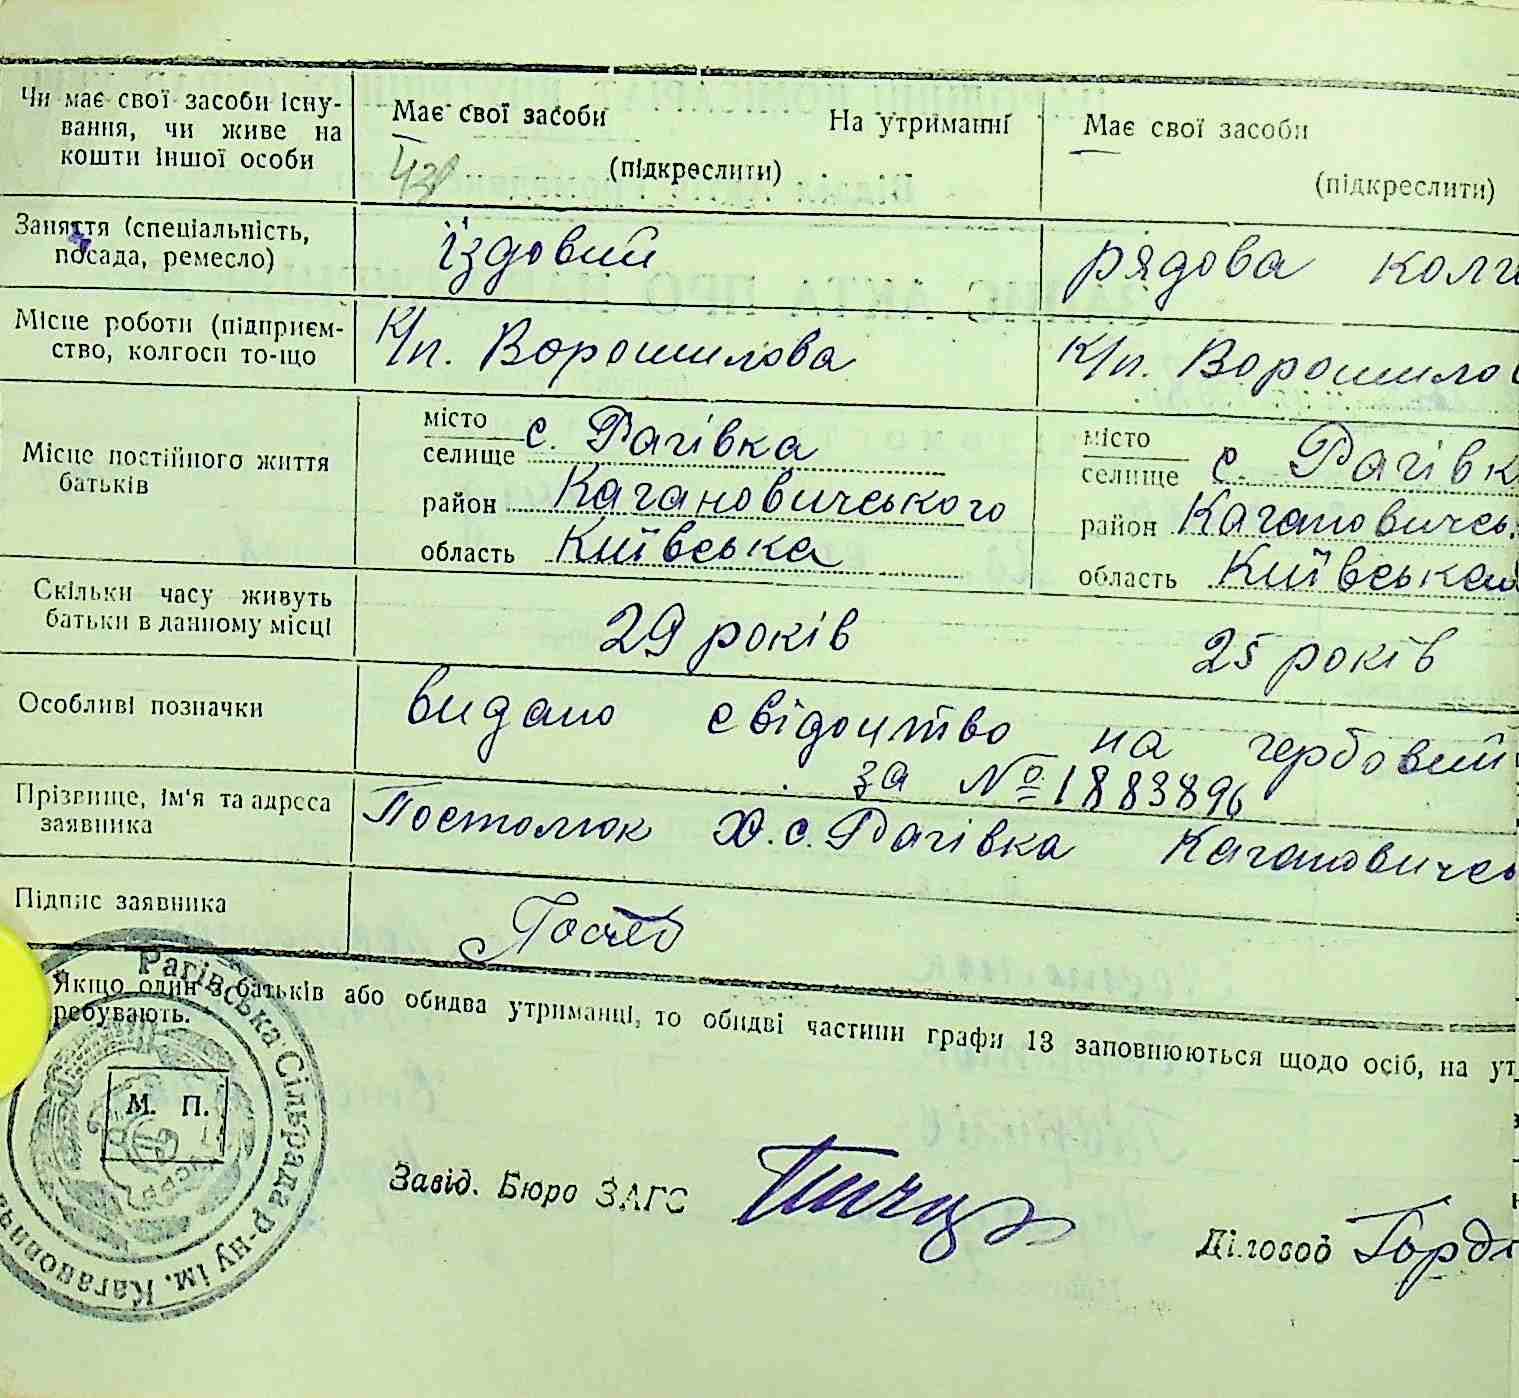 Чи має свої засоби існу-
вання, чи живе на
кошти іншої особи
Має свої засоби На утриманні
(підкреслити)
Має свої засоби
(підкреслити)
Заняття (спеціальність,
посада, ремесло)
їздовий
рядова колг
Місце роботи (підприєм-
ство, колгосп то-що
К/п. Ворошилова
К/п. Ворошилов
Місце постійного життя
батьків
місто
селище с. Рагівка
район Кагановичського
область Київська
місто
селище с. Рагівк
район Кагановичсь
область Київська
Скільки часу живуть
батьки в данному місці
29 років
25 років
Особливі позначки
видано свідоцтво на гербовий
за № 1883896
Прізвище, ім'я та адреса
заявника
Постолюк Х. с. Рагівка Кагановичсь
Підпис заявника
Якщо один з батьків або обидва утриманці, то обидві частини графи 13 заповнюються щодо осіб, на ут
ребувають.
Рагівська Сільрада р-ну ім. Кагановича
М. П.
УСРР
Завід. Бюро ЗАГС
Діловод Горд